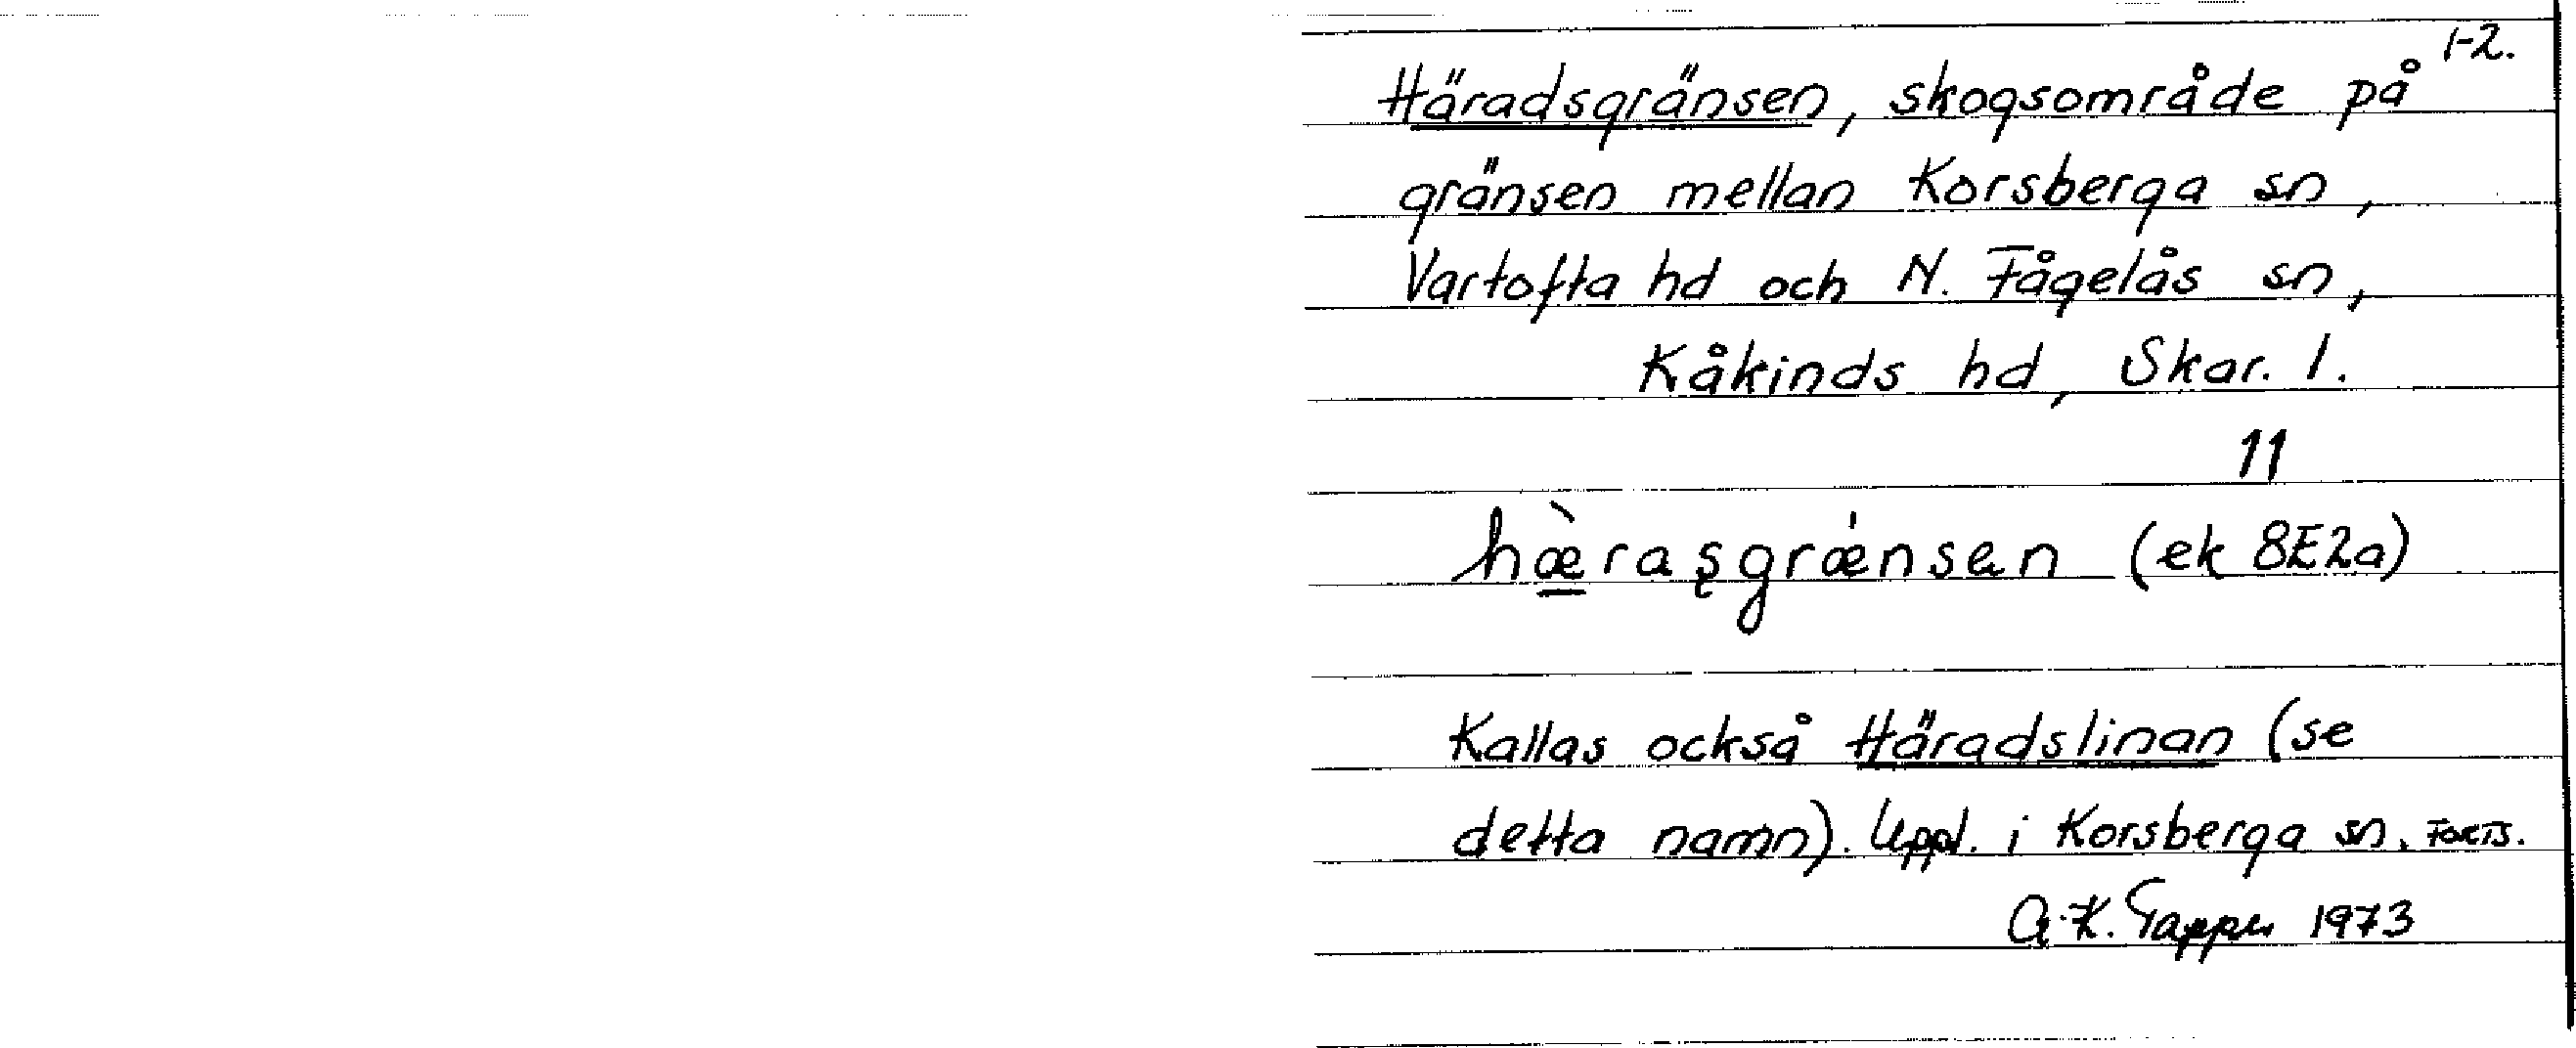 1-2.
Häradsgränsen, skogsområde på
gränsen mellan Korsberga sn,
Vartofta hd och N. Fågelås sn,
Kåkinds hd, Skar. l.
11
hæ̀rasgrǽnsen (ek 8E2a)
Kallas också Häradslinan (se
detta namn). Uppl. i Korsberga sn. FORTS.
A-K. 1973